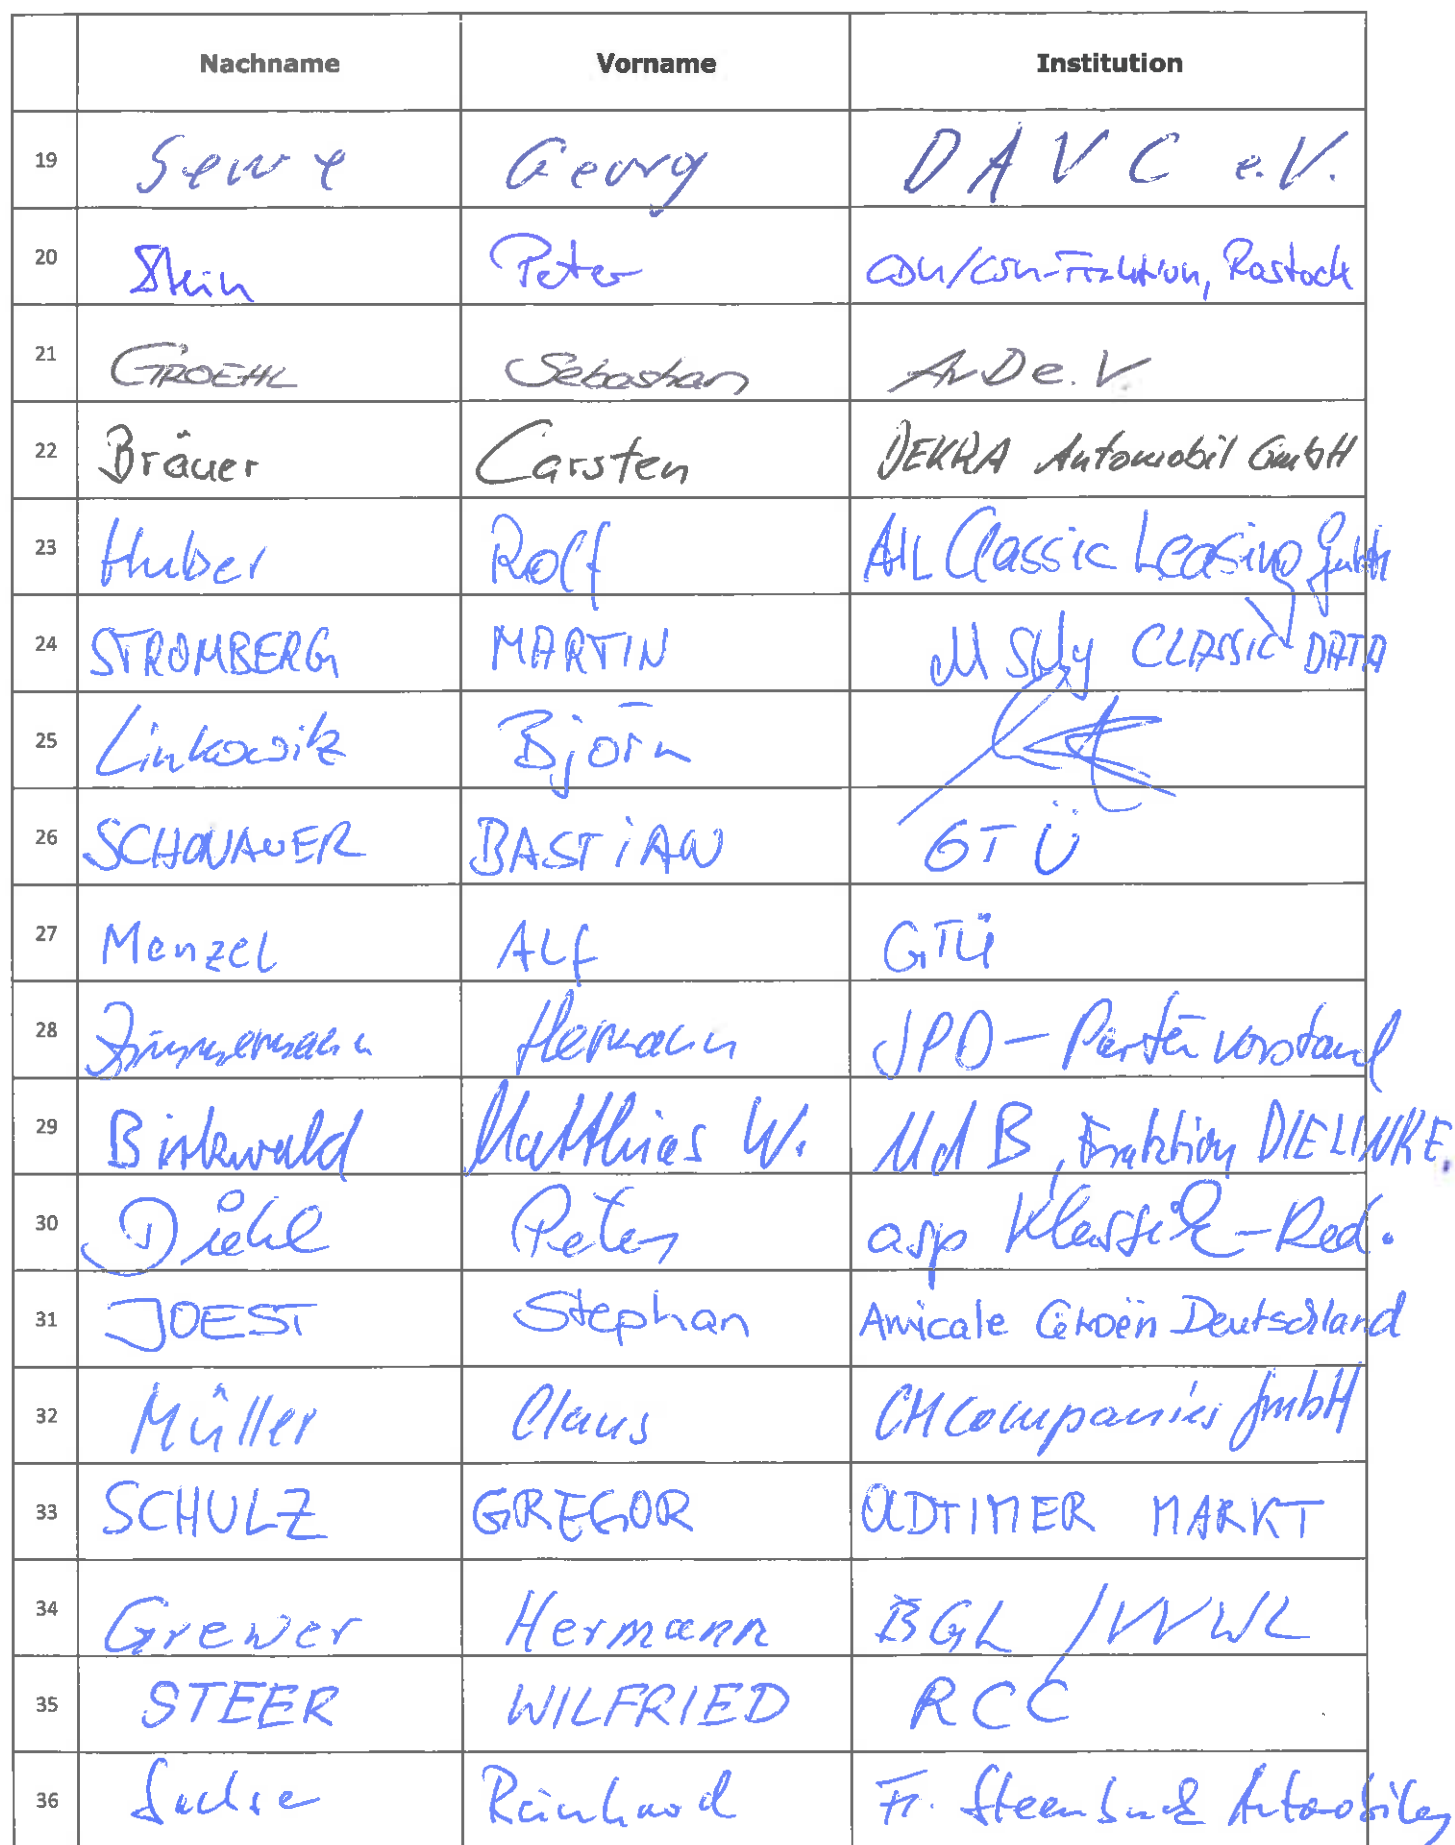 Nachname Vorname Institution
19 Sewe Georg DAVC e.V.
20 Stein Peter CDU/CSU-Fraktion, Rostock
21 GROEHL Sebastian AvD e.V
22 Bräuer Carsten DEKRA Automobil GmbH
23 Huber Rolf AIL Classic Leasing GmbH
24 STROMBERG MARTIN CLASSIC DATA
25 Linkowitz Björn
26 SCHÖNAUER BASTiAN GTÜ
27 Menzel ALf GTÜ
28 Zimmermann Hermann SPD-Parteivorstand
29 Birkwald Matthias W. MdB, Fraktion DIE LINKE.
30 Diehl Peter asp Klassik-Red.
31 JOEST Stephan Amicale Citroën Deutschland
32 Müller Claus CMCompanies GmbH
33 SCHULZ GREGOR OLDTIMER MARKT
34 Grewer Hermann BGL / VVWL
35 STEER WILFRIED RCC
36 Sachse Reinhard Fr. Steenbuck Automobiles